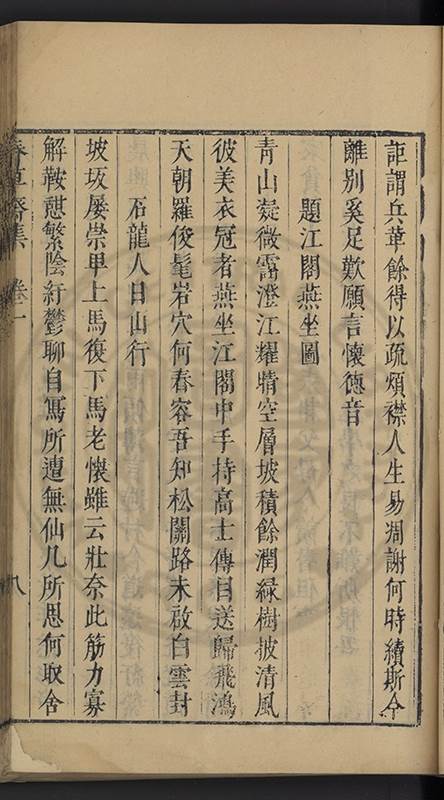 詎謂兵革餘得以疏煩襟人生易凋謝何時續斯今
離别奚足歎願言懷德音
題江閣燕坐圖
青山凝微靄澄江耀晴空層坡積餘潤緑樹披清風
彼美衣冠者燕坐江閣中手持高士傳目送歸飛鴻
天朝羅俊髦岩穴何春容吾知松關路未啟白雲封
石龍人日山行
坡坂屡崇卑上馬復下馬老懷雖云壯奈此筋力寡
解鞍憇繁陰紓鬱聊自寫所遭無仙凡所思何取舍
春草齋集 卷一 九